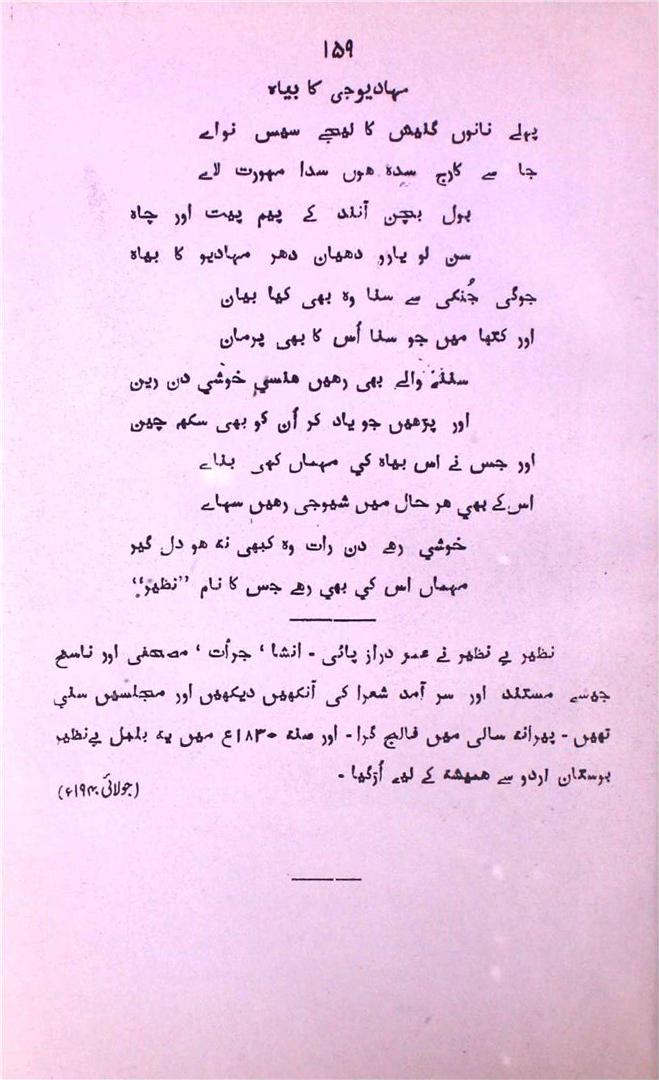 ۱۵۹
مہادیوجی کا بیاہ
پہلے نانوں گنیش کا لیجے سیس نواے
جا سے کارج سدہ ہوں سدا مہورت لاے
بول بچن آنند کے پیم پیت اور چاہ
سن لو یارو دھیان دھر مہادیو کا بیاہ
جوگی جُنگی سے سنا وہ بھی کیا بیان
اور کتھا میں جو سنا اُس کا بھی پرمان
سننے والے بھی رھیں ھنسی خوشی دن رین
اور پڑھیں جو یاد کر اُن کو بھی سکھ چین
اور جس نے اس بیاہ کی مہماں کہی بناے
اس کے بھی ھر حال میں شیوجی رھیں سہاے
خوشی رھے دن رات وہ کبھی نہ ھو دل گیر
مہماں اس کی بھی رھے جس کا نام ”نظیر“
نظیر بے نظیر نے عمر دراز پائی - انشا، جرأت، مصحفی اور ناسخ
جیسے مستند اور سر آمد شعرا کی آنکھیں دیکھیں اور مجلسیں سنی
تھیں - پیرانہ سالی میں فالج گرا - اور سنہ ۱۸۳۰ع میں یہ بلبل بےنظیر
بوستان اردو سے ھمیشہ کے لیے اُڑگیا -
(جولائی ۱۹۴۰ء)